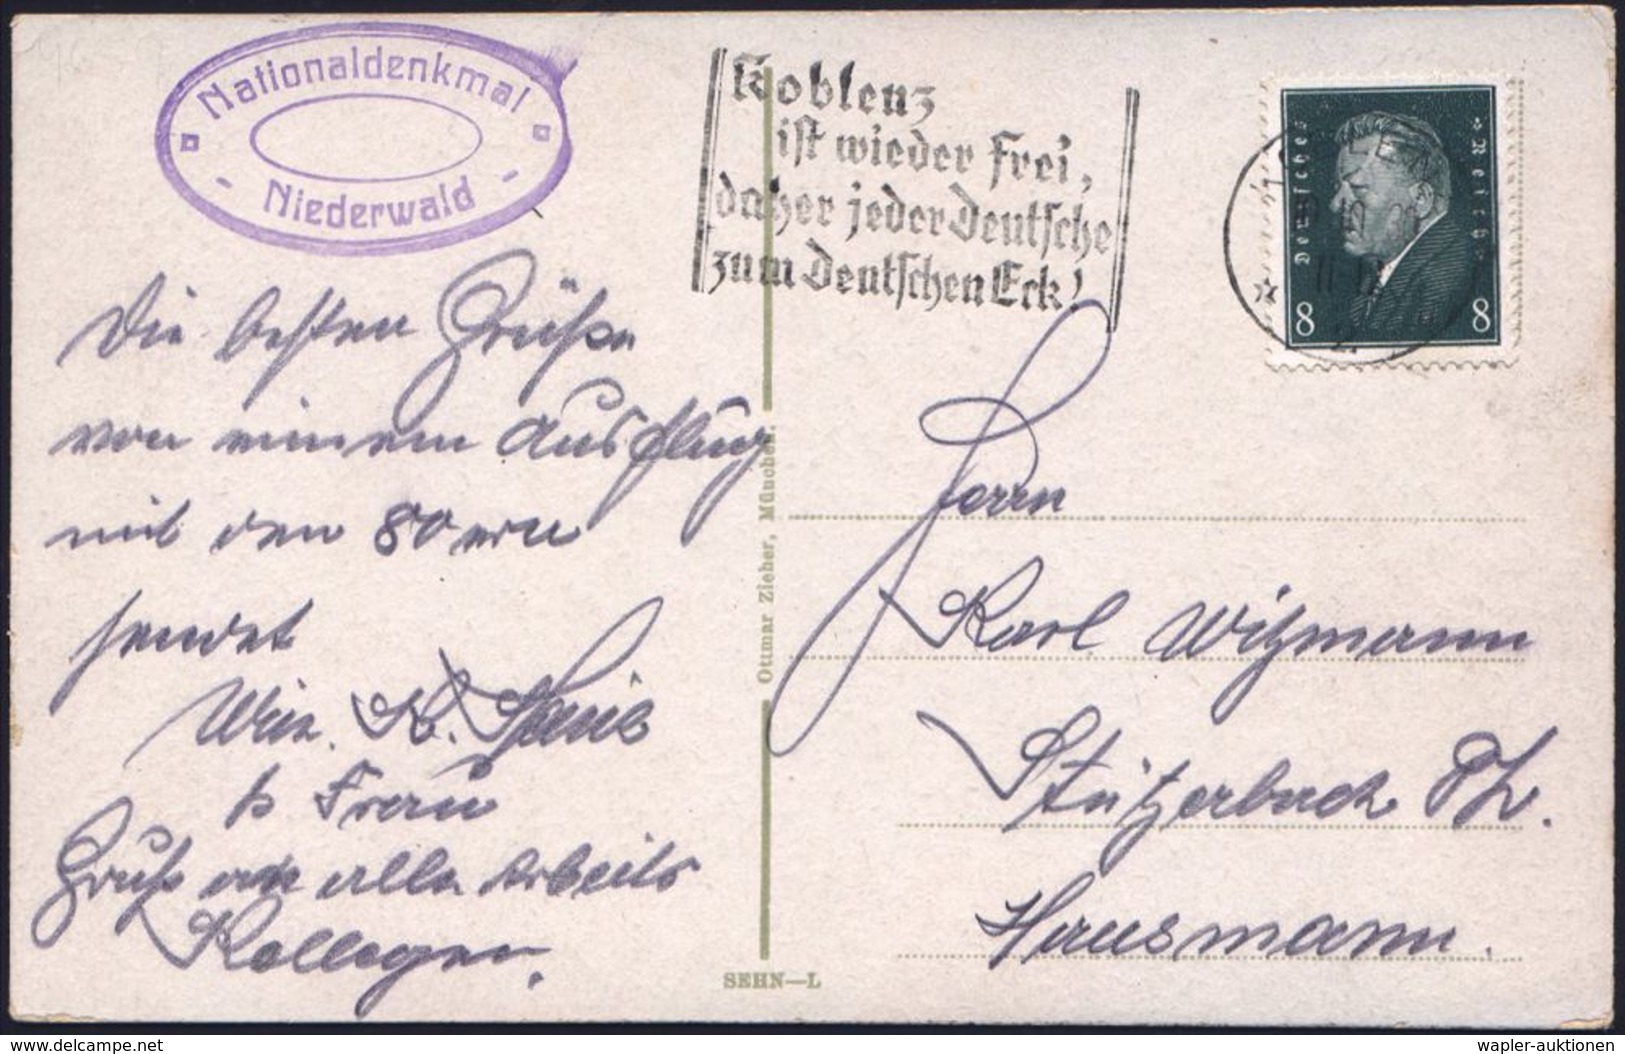 Nationaldenkmal
- Niederwald -
Koblenz
ist wieder frei,
daher jeder Deutsche
zum Deutschen Eck!
Deutsches Reich
8 8
Die besten Grüße
von einem Ausflug
mit den 80 ern
sendet
K.
Frau
Gruß an alle Arbeits
Kollegen.
Ottmar Zieher, München.
SEHN—L
Herrn
Karl Witzmann
Stützerbach Th.
Hausmann.
delcampe.net
wapler-auktionen